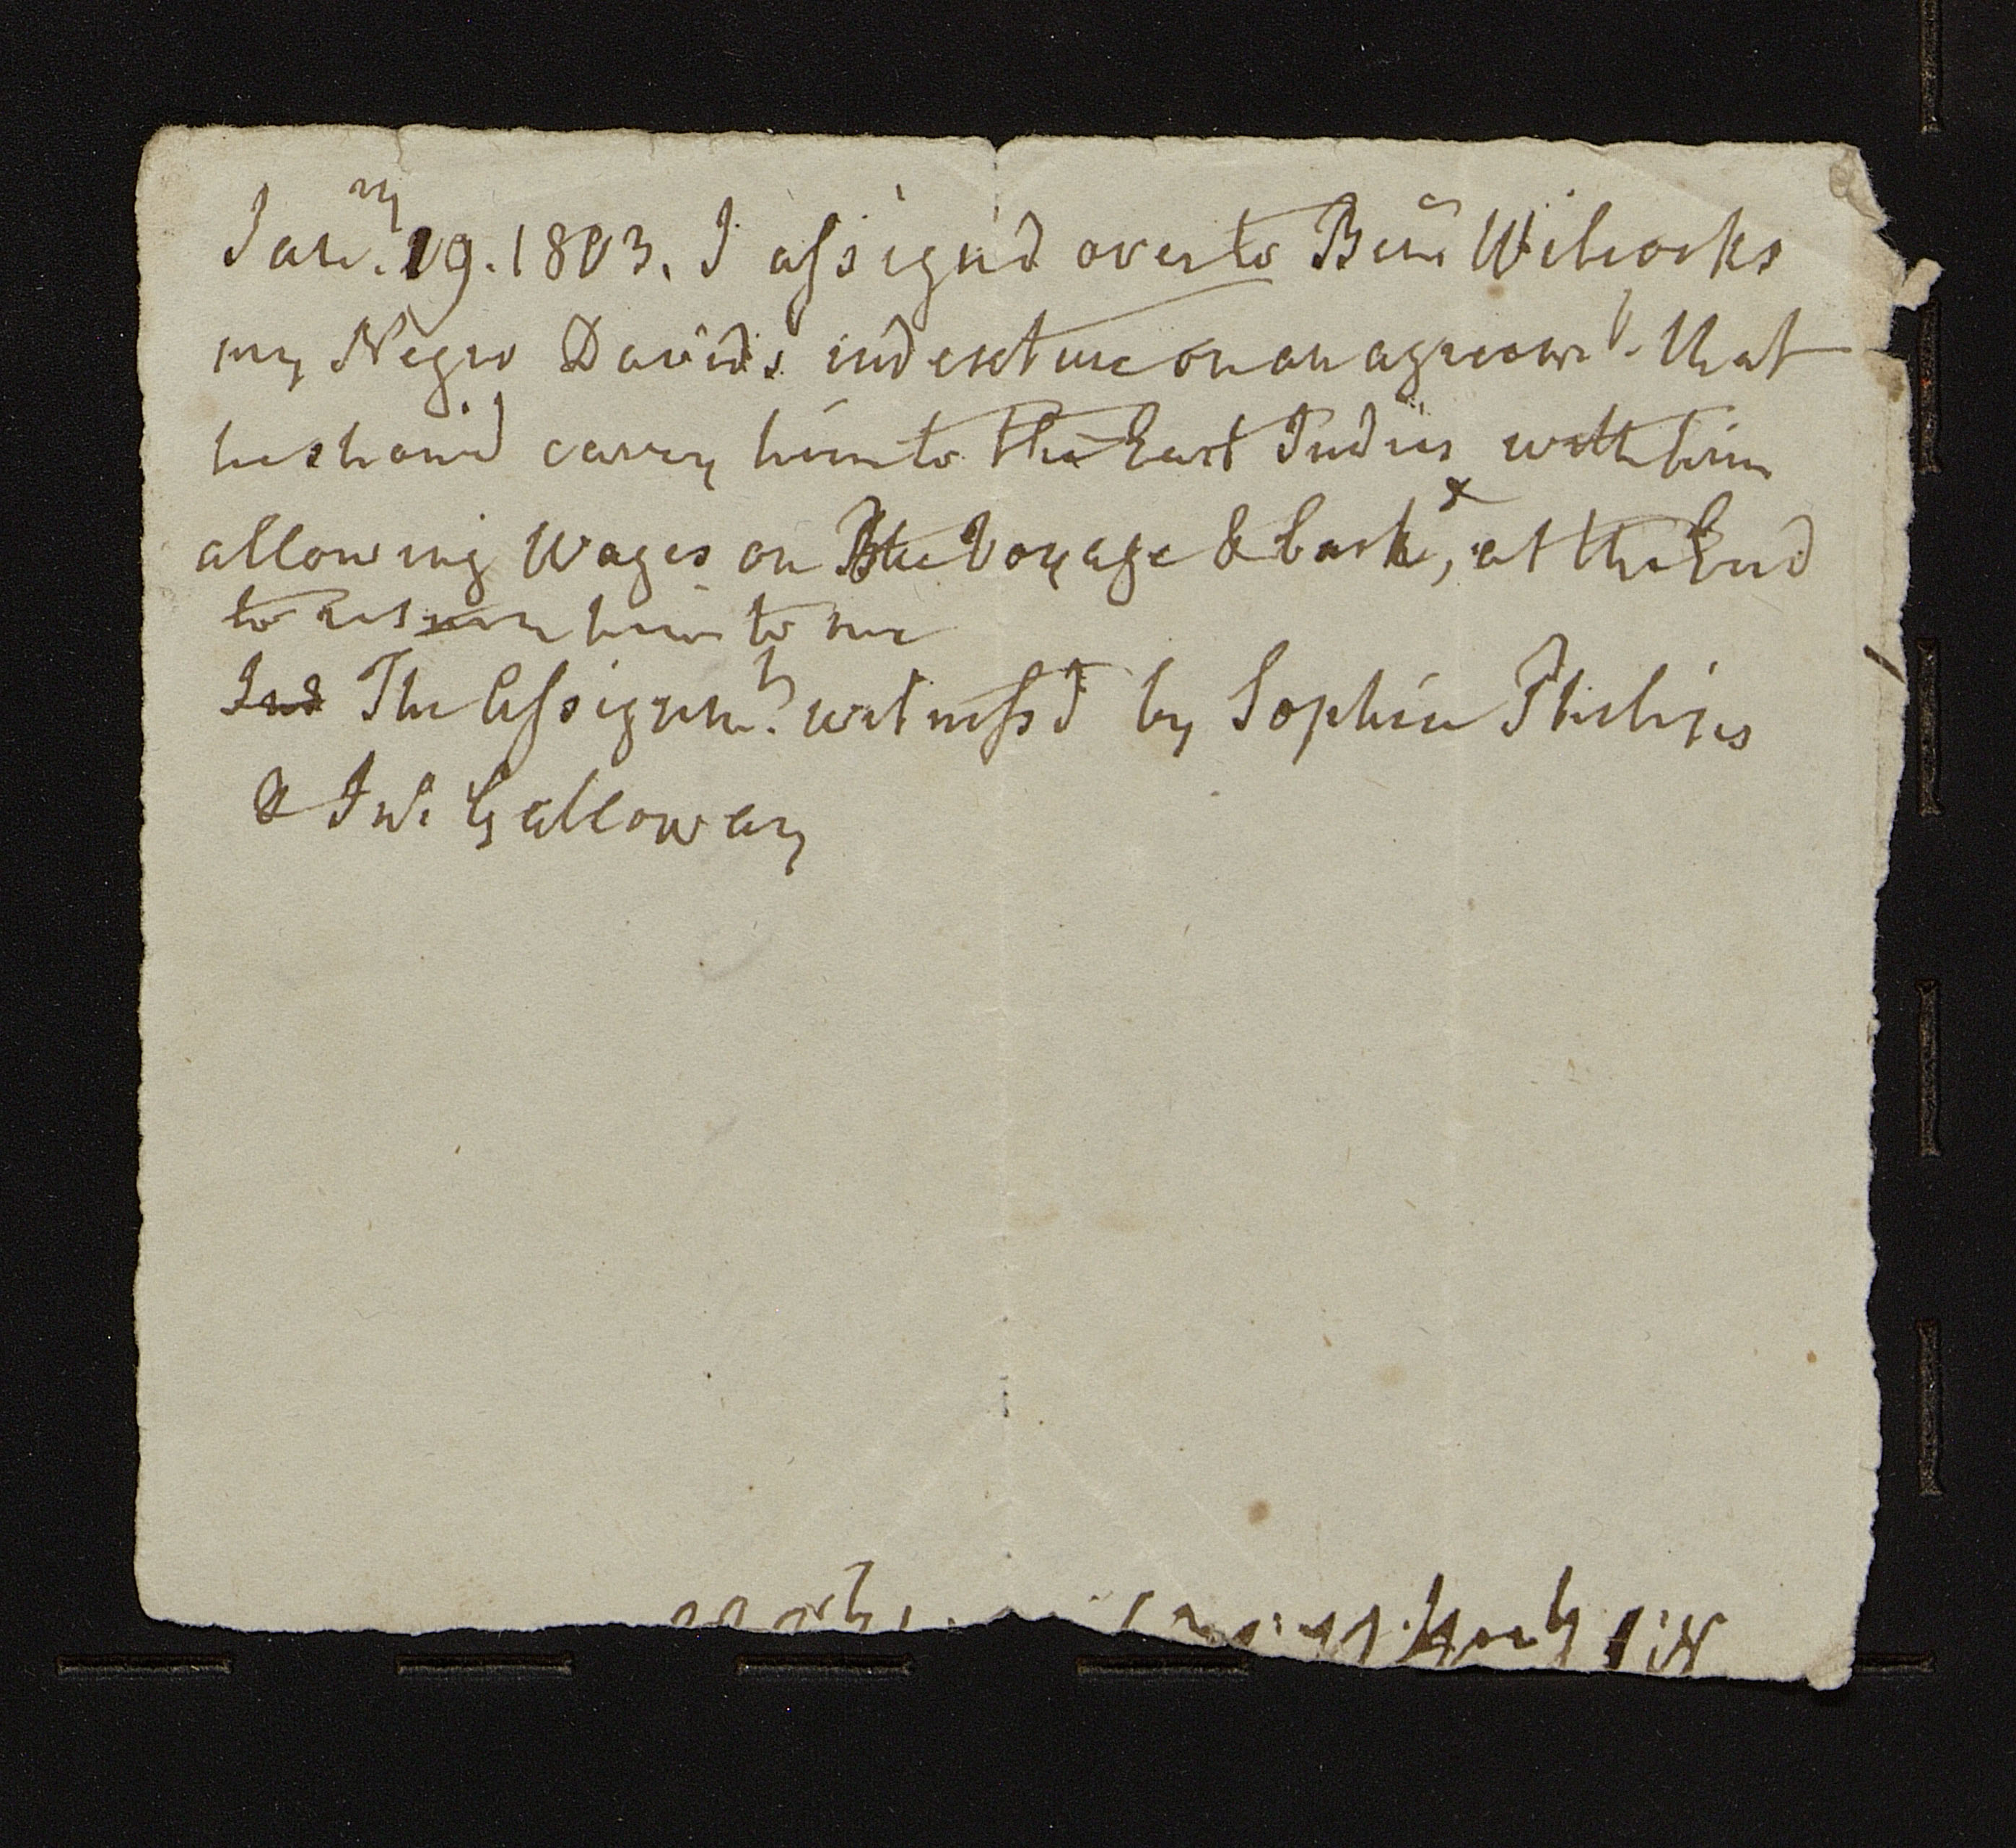 Jan.ry 19. 1803. I assignd over to Benn Wilcocks
my Negro David's indenture on an agreemt. that
he shou'd carry him to the East Indies with him
allowing Wages on the Voyage & back &, at the End
to return him to me
Ind The Assignmt. witness'd by Sophia Philips
& Jno. Galloway